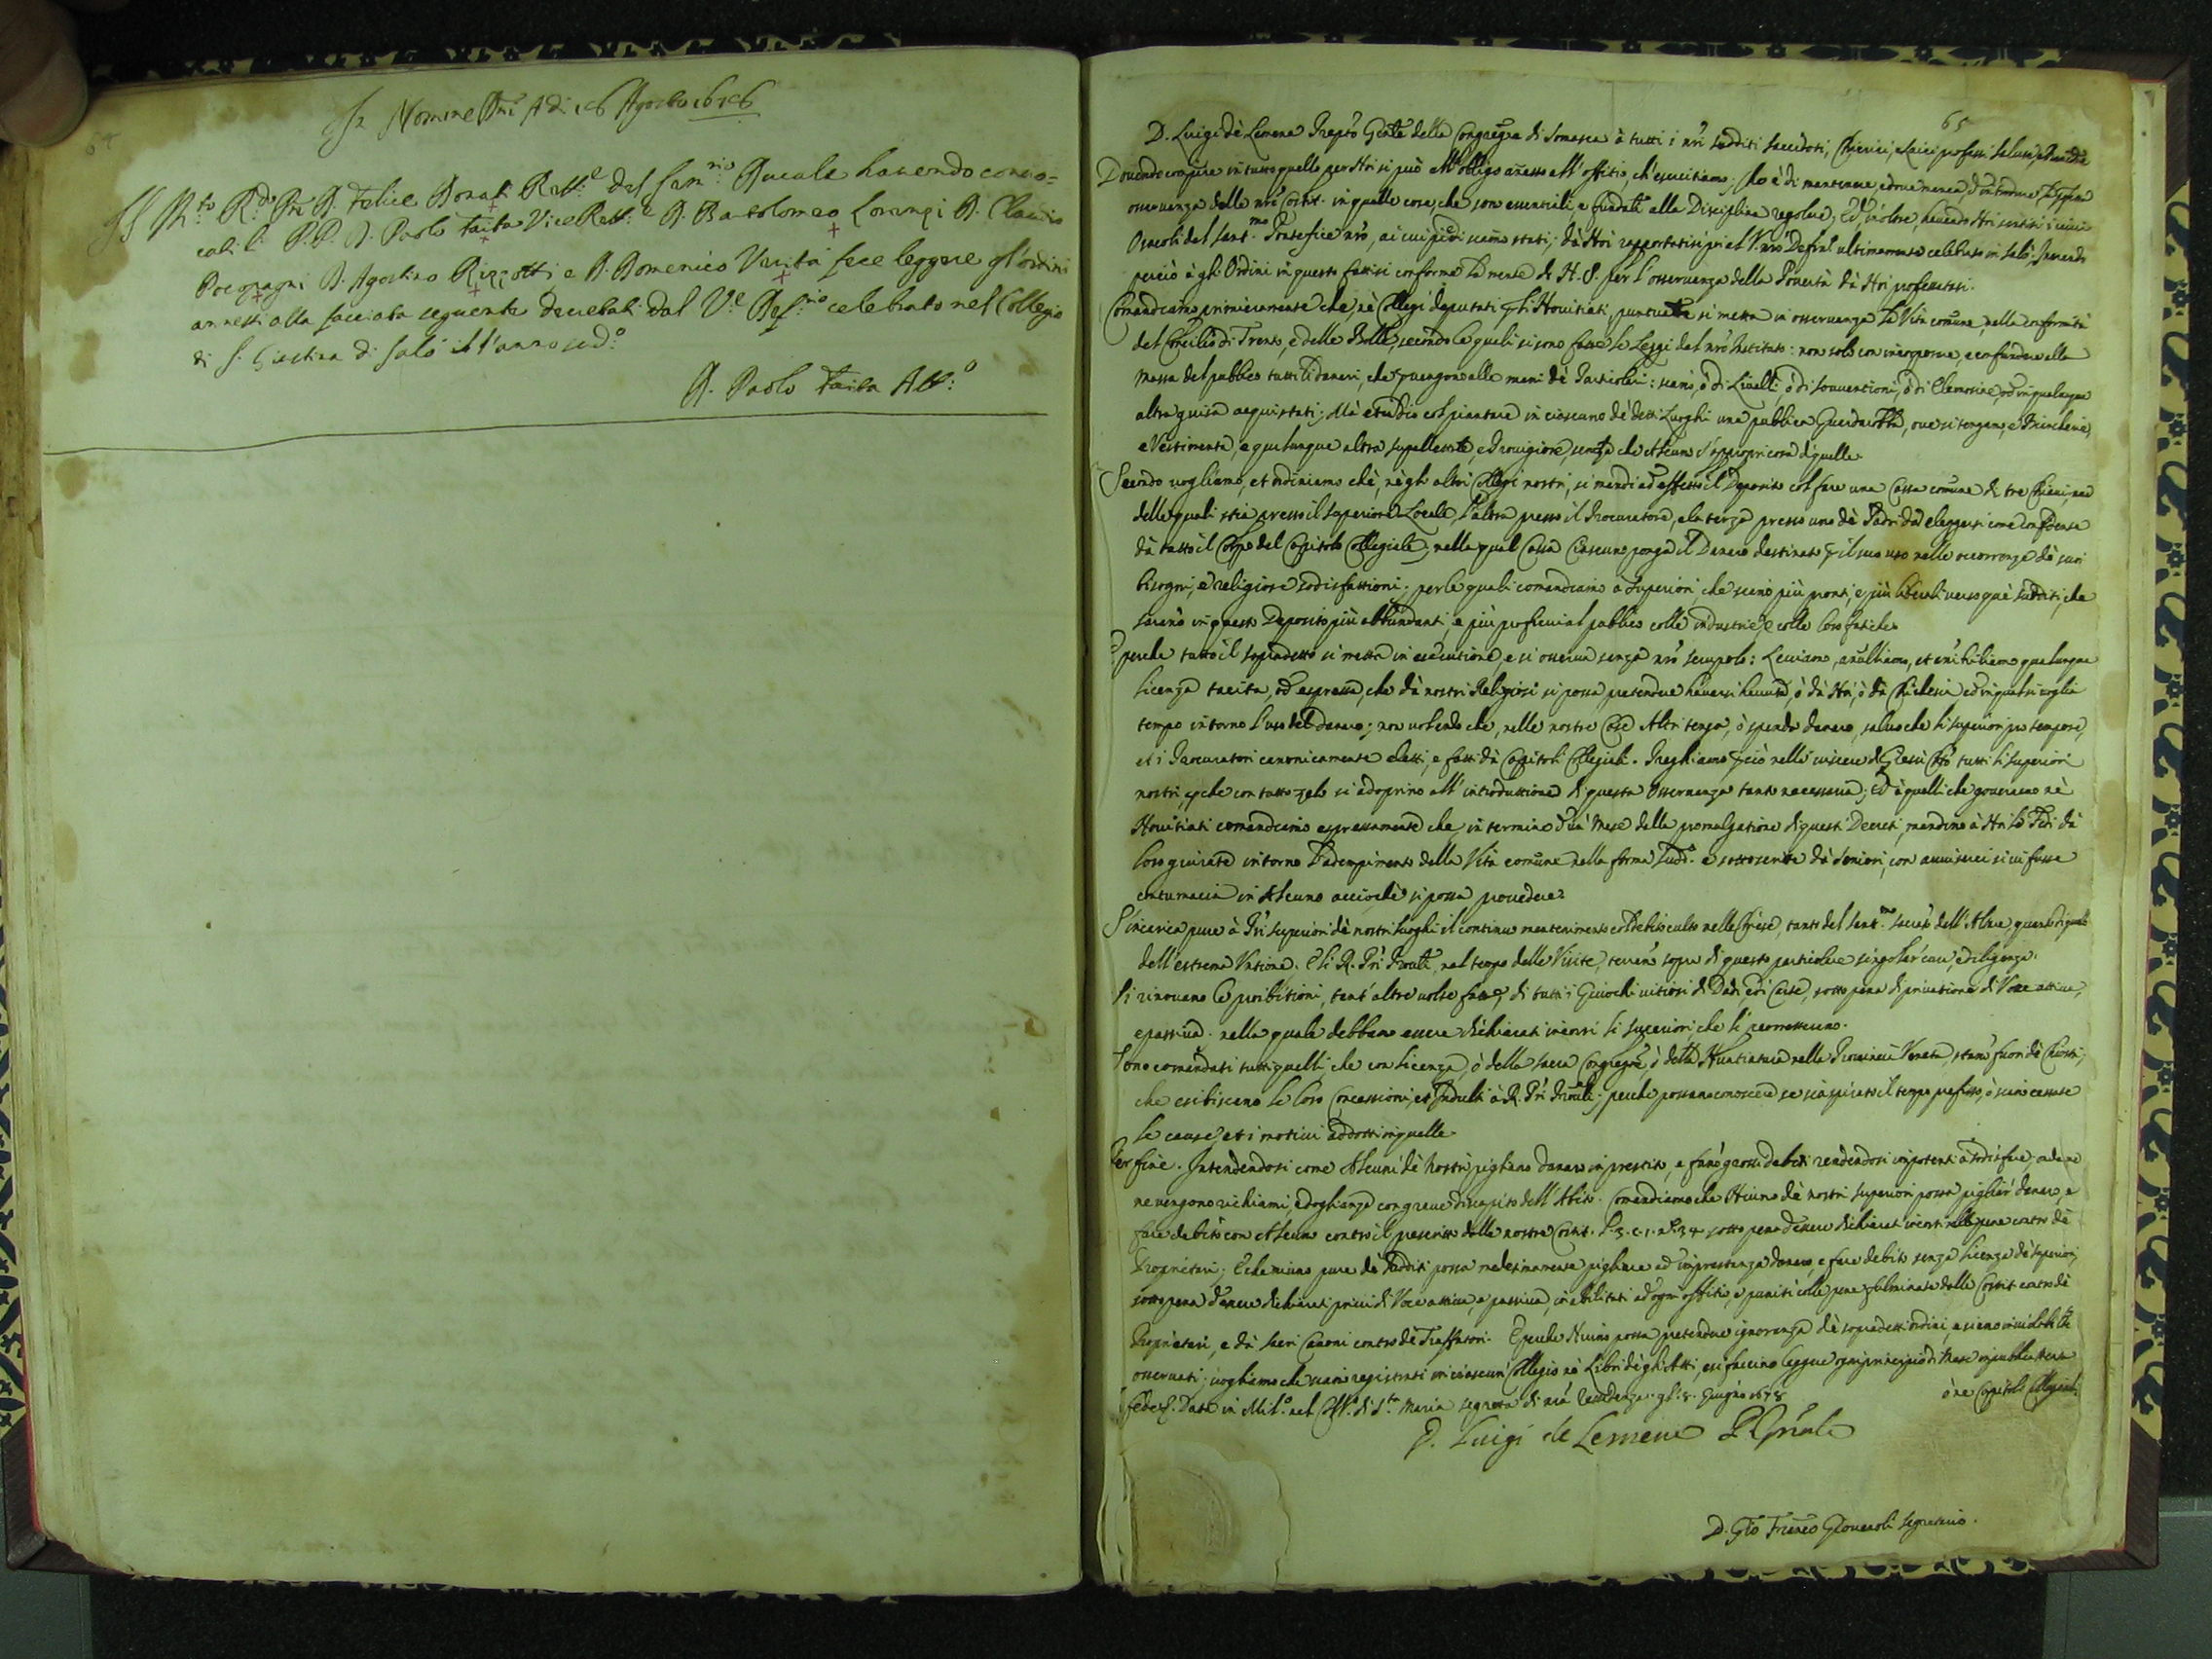 64
In Nomine Dni Adi 16 Agosto 1676
Il M.to R.do Pre D. Felice Donati Rett.e del Sem.rio Ducale havendo convo=
cati li P.P. D. Paolo Taita Vice Rett.e D. Bartolomeo Lorenzi D. Claudio
D. Agostino Rizzotti e D. Domenico Varità fece leggere gl'ordini
annessi alla facciata seguente decretati dal V.e Def.rio celebrato nel Collegio
di S. Giustina di Salò l'anno sud.o
D. Paolo Taita Att.o
65
D. Luigi de Lemene Prep.o Gnale della Congregne di Somasca à tutti i nri sudditi Sacerdoti, Chierici, e Laici professi salute,
Dovendo compire in tutto quello per Noi si può all'obligo annesso all'offitio, ch'esercitiamo,
osservanza delle nre Constit. in quelle cose, che sono essentiali, e fondati alla Disciplina regolare,
Oracoli del Sant.mo Pontefice nro, ai cui piedi siamo stati, dà Noi rapportatisi poi al V. nro Definit. ultimamente celebrato in Salò,
perciò à gli Ordini in questo fattisi conforme la mente di N. S. per l'osservanza della Povertà dà Noi professatasi.
Comandiamo primieramente che, ne Collegi deputati p li Novitiati, si metta in osservanza la Vita comune, nella conformità
del Concilio di Trento, e delle Bolle, secondo le quali si sono fatte le Leggi del nro Instituto: non solo con incorporare, e confondere alla
massa del publico tutti li danari, che pervengono alle mani de Particolari: siano, ò di Livelli, ò di souventioni, ò di Elemosine, od in qualunque
altra guisa acquistati; Mà etiandio col piantare in ciascuno de detti Luoghi una publica Guardarobba, ove si tengano, e Biancherie,
e Vestimenta, e qualunque altra supellettile, e Provigione, senza che Alcuno s'appropri cosa di quelle.
Secondo vogliamo, et ordiniamo che, ne gli altri Collegi nostri, si mandi ad effetto il Deposito col fare una Cassa comune di tre Chiavi, una
delle quali stia presso il Superiore Locale, l'altra presso il Procuratore, e la terza presso uno de Padri da eleggersi come
dà tutto il Corpo del Capitolo Collegiale, nella qual Cassa Ciascuno ponga il Danaro destinato p il suo uso nelle occorrenze de suoi
bisogni, e religiose sodisfattioni; per le quali comandiamo à Superiori, che siano più pronti, e più liberali verso que sudditi, che
saranno in questo Deposito più abbondanti, e più proficui al publico colle industrie, e colle loro fatiche.
E perche tutto il sopradetto si metta in essecutione, e si osservi senza nro scrupolo: Leviamo, anulliamo, et qualunque
licenza tacita, od espressa, che dà nostri Religiosi si possa pretendere havere havuta, ò dà Noi, ò dà Chi si sia ed in qual si voglia
tempo intorno l'uso del danaro; non volendo che, nelle nostre Case Altri tenga, ò spenda danaro, salvo che li Superiori pro tempore,
et i Procuratori canonicamente eletti, e fatti dà Capitoli Collegiali. Preghiamo pciò nelle viscere di Giesù Xpo tutti li Superiori
nostri, pche con tutto zelo si adoprino all'introduttione di questa Osservanza tanto necessaria; Et à quelli che governano ne
Novitiati comandiamo espressamente che, in termine d'un Mese dalla promulgatione di questi Decreti, mandino à Noi le Fedi da
loro giurate intorno l'adempimento della Vita comune nella forma sudd.a e sottoscritte dà Seniori, con avvisarci si vi fusse
contumacia in Alcuno acciochè si possa provedere.
S'incarica pure à Pri Superiori de nostri Luoghi il continuo mantenimento col debito culto nelle Chiese, tanto del Sant.mo Sacram.to dell'Altare, quanto di quello
dell'estrema Untione. E li R. Pri Provali, nel tempo delle Visite, terranno sopra di questo particolare singolar cura, e diligenza.
Si rinovano le prohibitioni, tant'altre volte fatte, di tutti i Giuochi vitiosi di Dadi, e di Carte, sotto pena di privatione di Voce attiva,
e passiva. nella quale debbano essere dichiarati incorsi li Superiori che li permettessero.
Sono comandati tutti quelli, che con licenza, ò della Sacra Congregne, ò della Nuntiatura nella Provincia Veneta, stanno fuori de Chiostri,
che esibiscano le loro Concessioni, et Indulti à R. Pri Provali; perche possano conoscere se sia spirato il tempo prefisso, ò siano cessate
le cause, et i motivi addotti in quelle.
Per fine. Intendendosi come Alcuni de Nostri pigliano danaro in prestito, e fanno grossi debiti rendendosi impotenti à sodisfare, onde ne
ne vengono richiami, e doglianze con grave discapito dell'Abito. Comandiamo che Niuno de nostri Superiori possa pigliar danaro, e
fare debito con Alcuno contro il prescritto delle nostre Constit. L. 3. c. 1. n. 34 sotto pena d'essere dichiarati incorsi nelle pene contro de
Proprietarj; E che niuno pure de Sudditi possa medesimamente pigliare ad imprestanza danaro, e fare debito senza licenza de Superiori,
sotto pena d'essere dichiarati privi di Voce attiva, e passiva, inabilitati ad ogni offitio, e puniti colle pene fulminate dalle Constit. contro de
Proprietarj, e dà Sacri Canoni contro de Trasgressori. E perche Niuno possa pretendere ignoranza de sopradetti ordini, e siano inviolabilmte
osservati; vogliamo che siano registrati in ciascun Collegio ne Libri de gli Atti, e si faccino leggere ogni principio di Mese in publica Mensa
ò ne Capitoli Collegiali.
In fede &. Dato in Mil.o nel Coll.o di S.ta Maria Segreta di nra Residenza gli 8. Giugno 1678
D. Luigi de Lemene P. Gnale
D. Gio Franco Giovaroli Segretario.